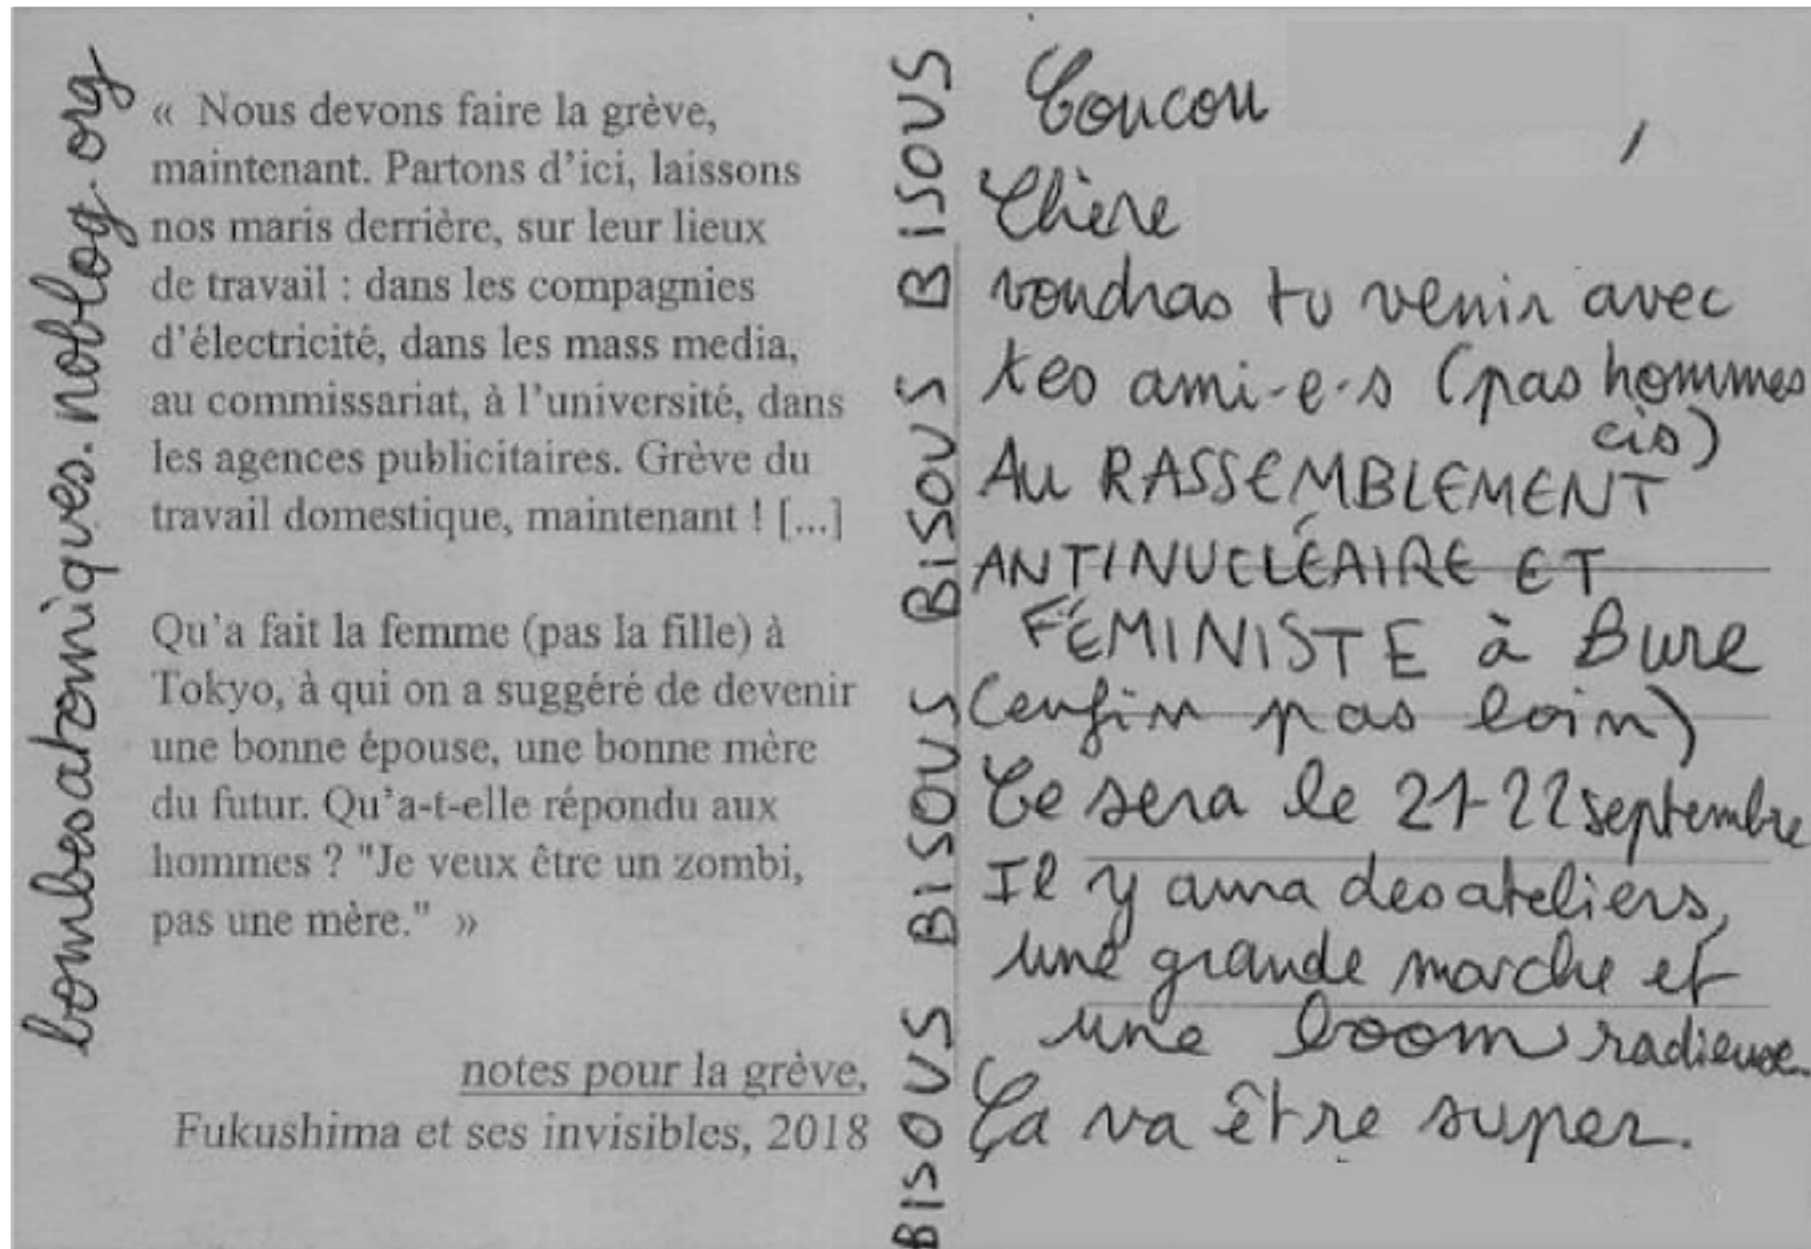 bombesatomiques.noblog.org
« Nous devons faire la grève,
maintenant. Partons d'ici, laissons
nos maris derrière, sur leur lieux
de travail : dans les compagnies
d'électricité, dans les mass media,
au commissariat, à l'université, dans
les agences publicitaires. Grève du
travail domestique, maintenant ! [...]
Qu'a fait la femme (pas la fille) à
Tokyo, à qui on a suggéré de devenir
une bonne épouse, une bonne mère
du futur. Qu'a-t-elle répondu aux
hommes ? "Je veux être un zombi,
pas une mère." »
notes pour la grève,
Fukushima et ses invisibles, 2018
BISOUS BISOUS BISOUS BISOUS
Coucou ,
Chère
voudras tu venir avec
tes ami-e-s (pas hommes
cis)
AU RASSEMBLEMENT
ANTINUCLÉAIRE ET
FÉMINISTE à Bure
(enfin pas loin)
Ce sera le 21-22 septembre
Il y aura des ateliers,
une grande marche et
une boom radieuse.
Ça va être super.